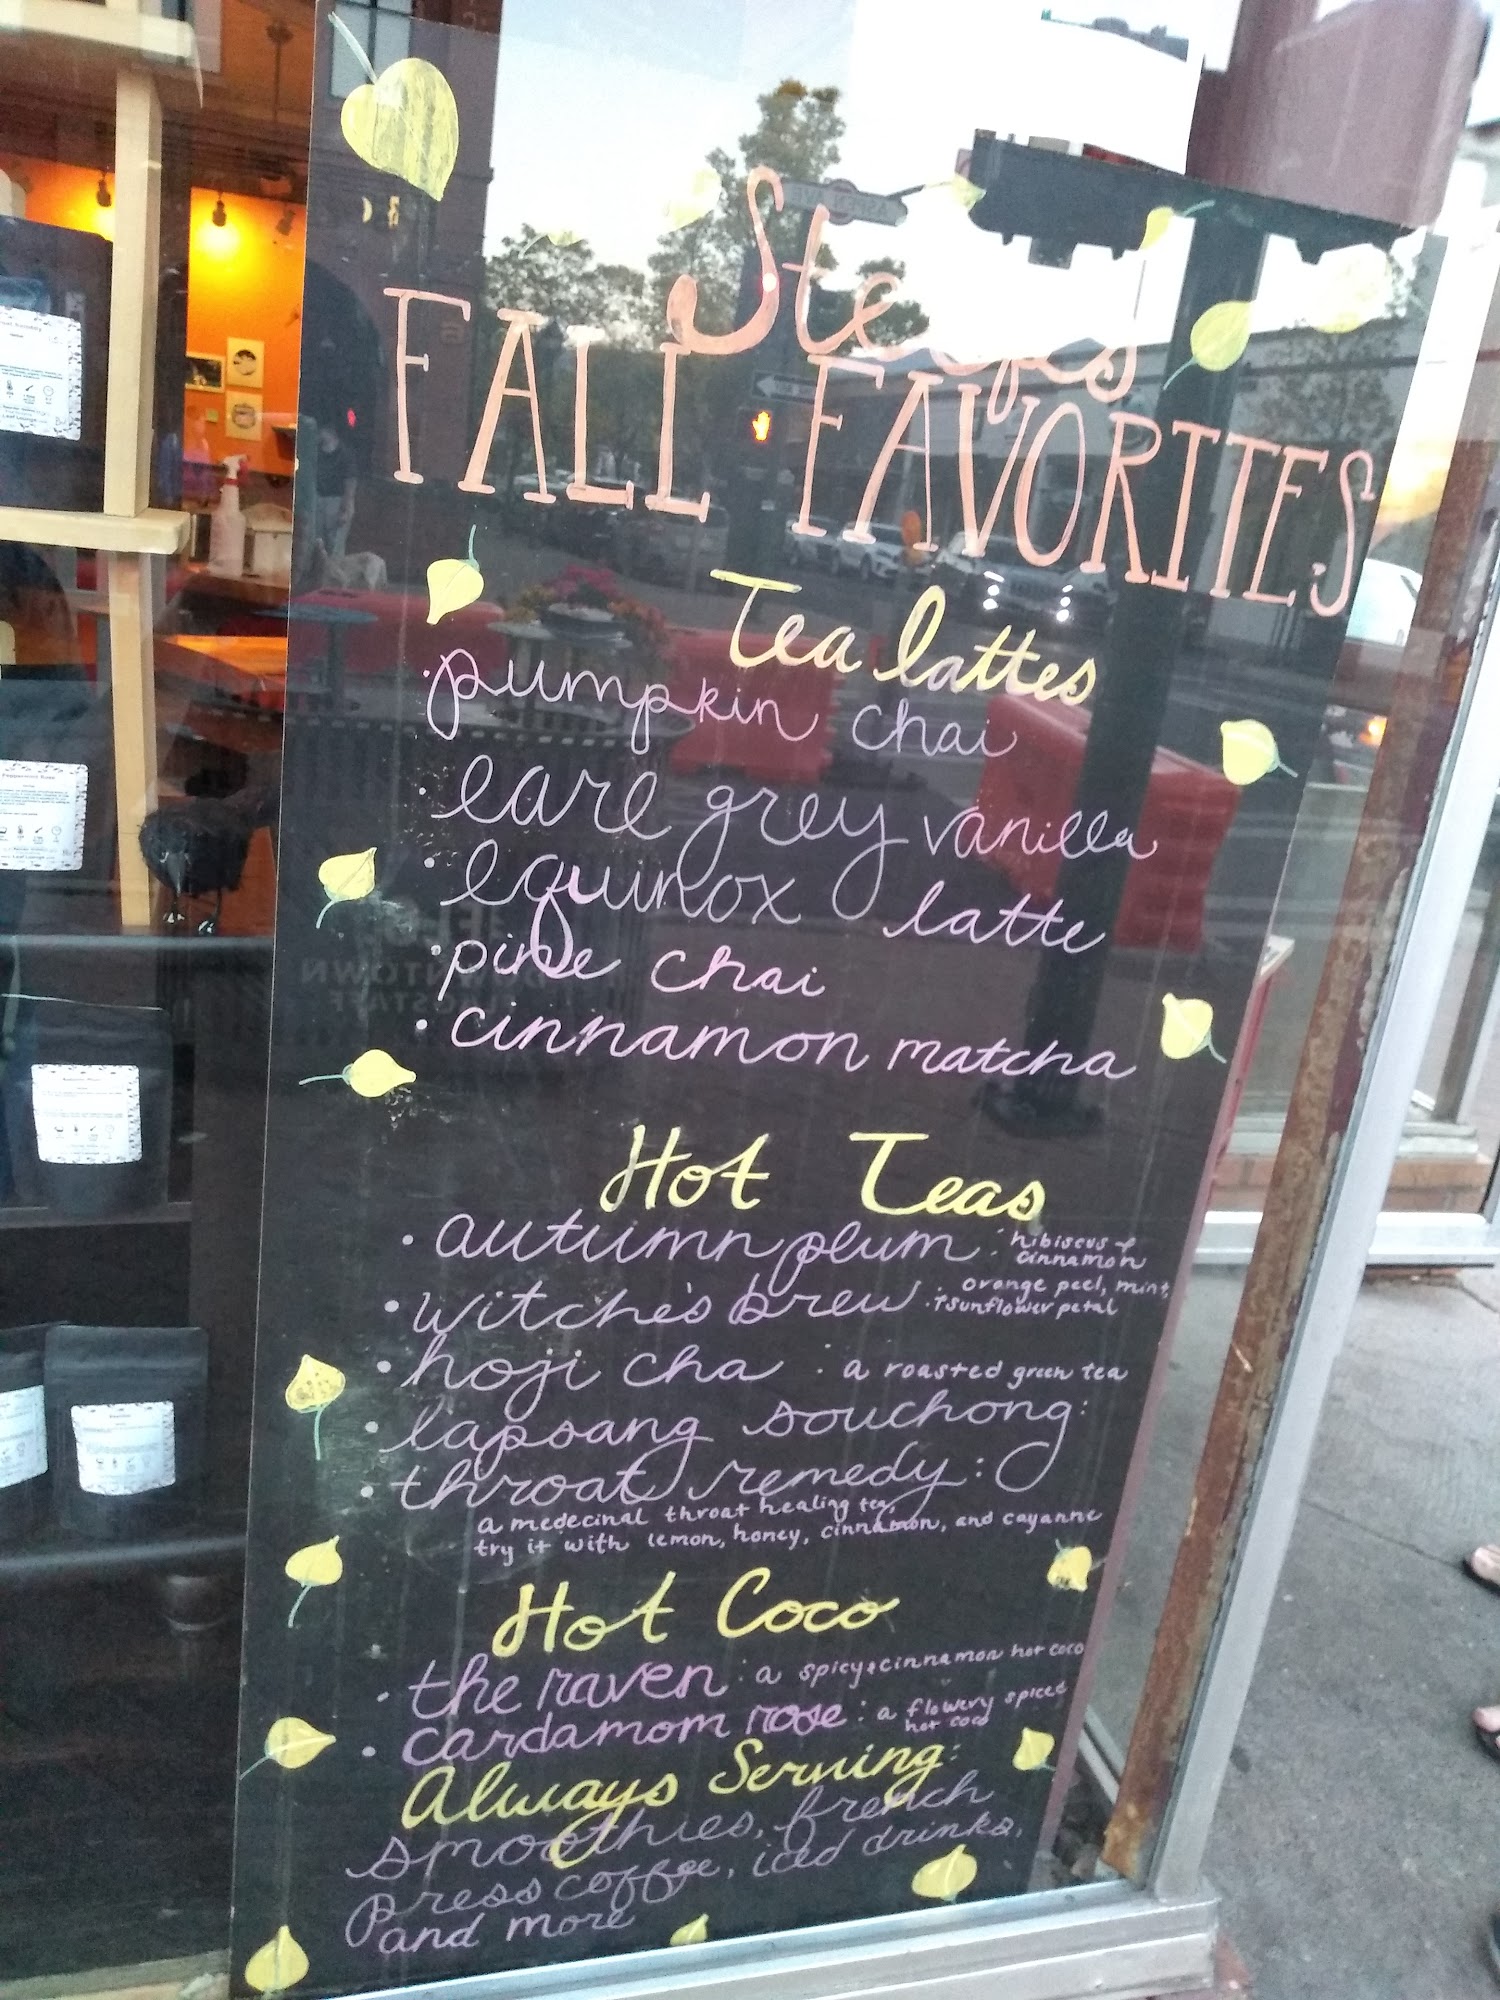 FALL FAVORITES
Tea lattes
· pumpkin chai
· earl grey vanilla
· equinox latte
· pine chai
· cinnamon matcha
Hot Teas
· autumn plum : hibiscus + cinnamon
· witche's brew : orange peel, mint, + sunflower petal
· hoji cha : a roasted green tea
· lapsang souchong:
· throat remedy:
a medecinal throat healing tea,
try it with lemon, honey, cinnamon, and cayanne
Hot Coco
· the raven: a spicy + cinnamon hot coco
· cardamom rose: a flowery spiced hot coco
Always Serving:
smoothies, french
press coffee, iced drinks,
and more
DOWNTOWN
FLAGSTAFF